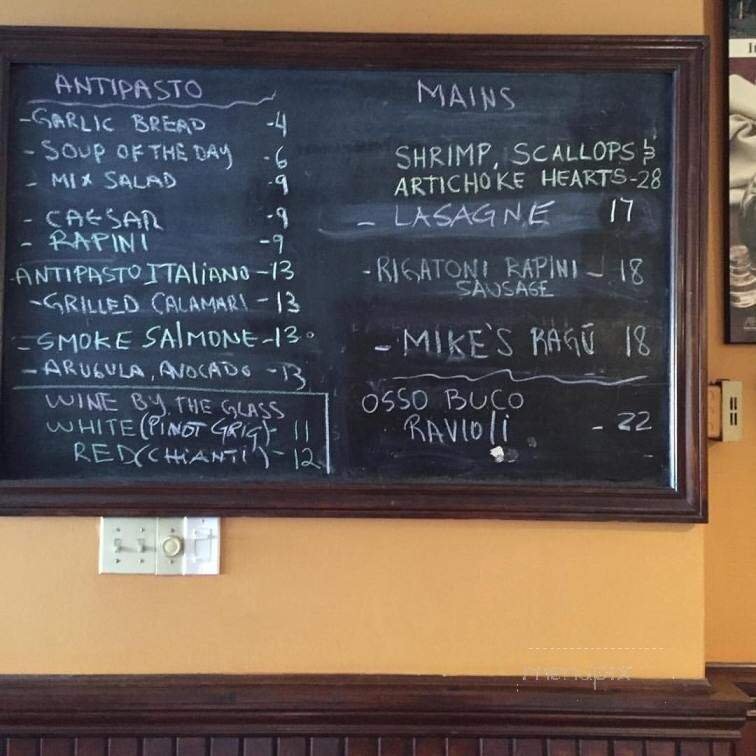 ANTIPASTO
-GARLIC BREAD -4
- SOUP OF THE DAY -6
- MIX SALAD -9
- CAESAR -9
- RAPINI -9
ANTIPASTO ITALIANO -13
-GRILLED CALAMARI -13
- SMOKE SALMONE -13
- ARUGULA, AVOCADO -13
WINE BY THE GLASS
WHITE (PINOT GRIG) - 11
RED (CHIANTI) - 12
MAINS
SHRIMP, SCALLOPS &
ARTICHOKE HEARTS -28
- LASAGNE 17
-RIGATONI RAPINI - 18
SAUSAGE
- MIKE'S RAGŪ 18
OSSO BUCO
RAVIOLI - 22
menupix